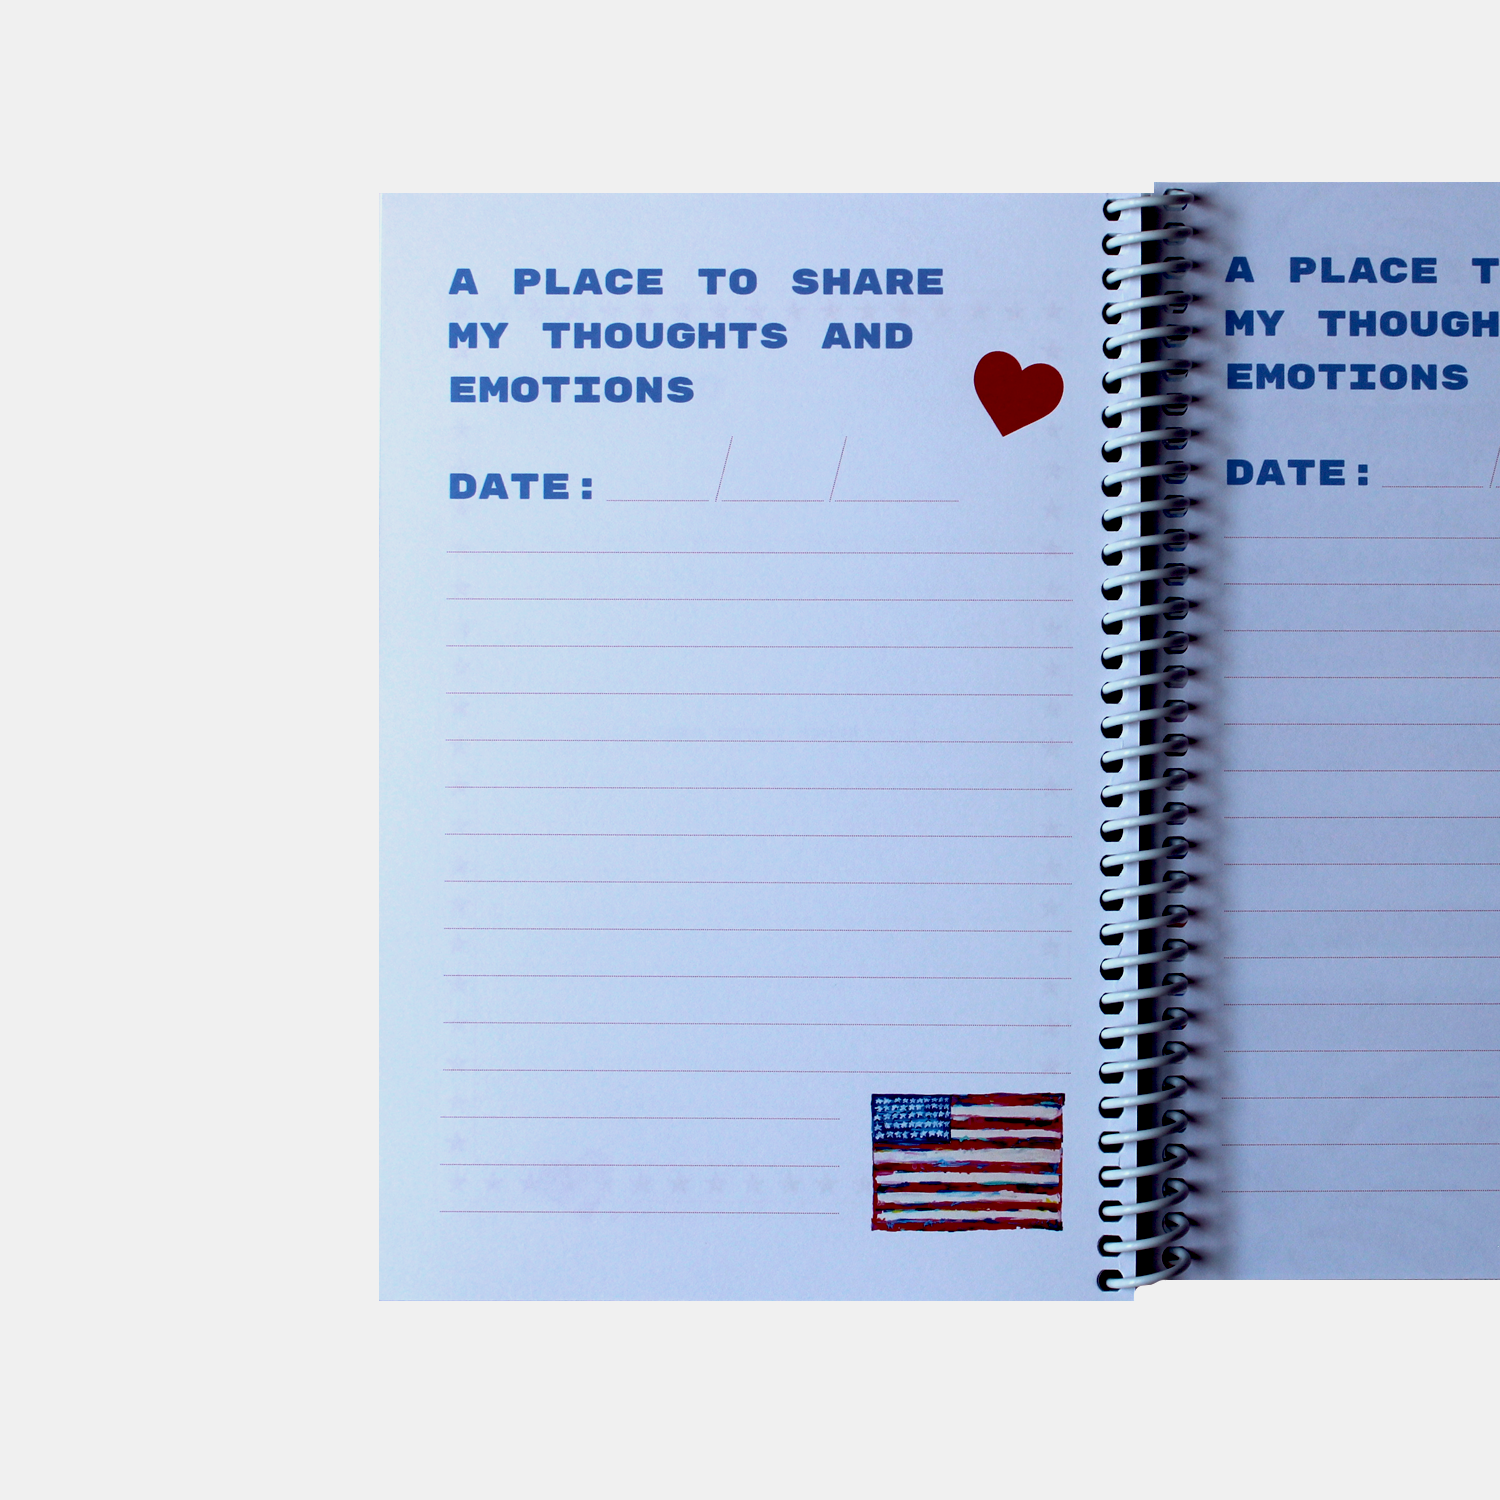 A PLACE TO SHARE
MY THOUGHTS AND
EMOTIONS
DATE:
A PLACE T
MY THOUGH
EMOTIONS
DATE: